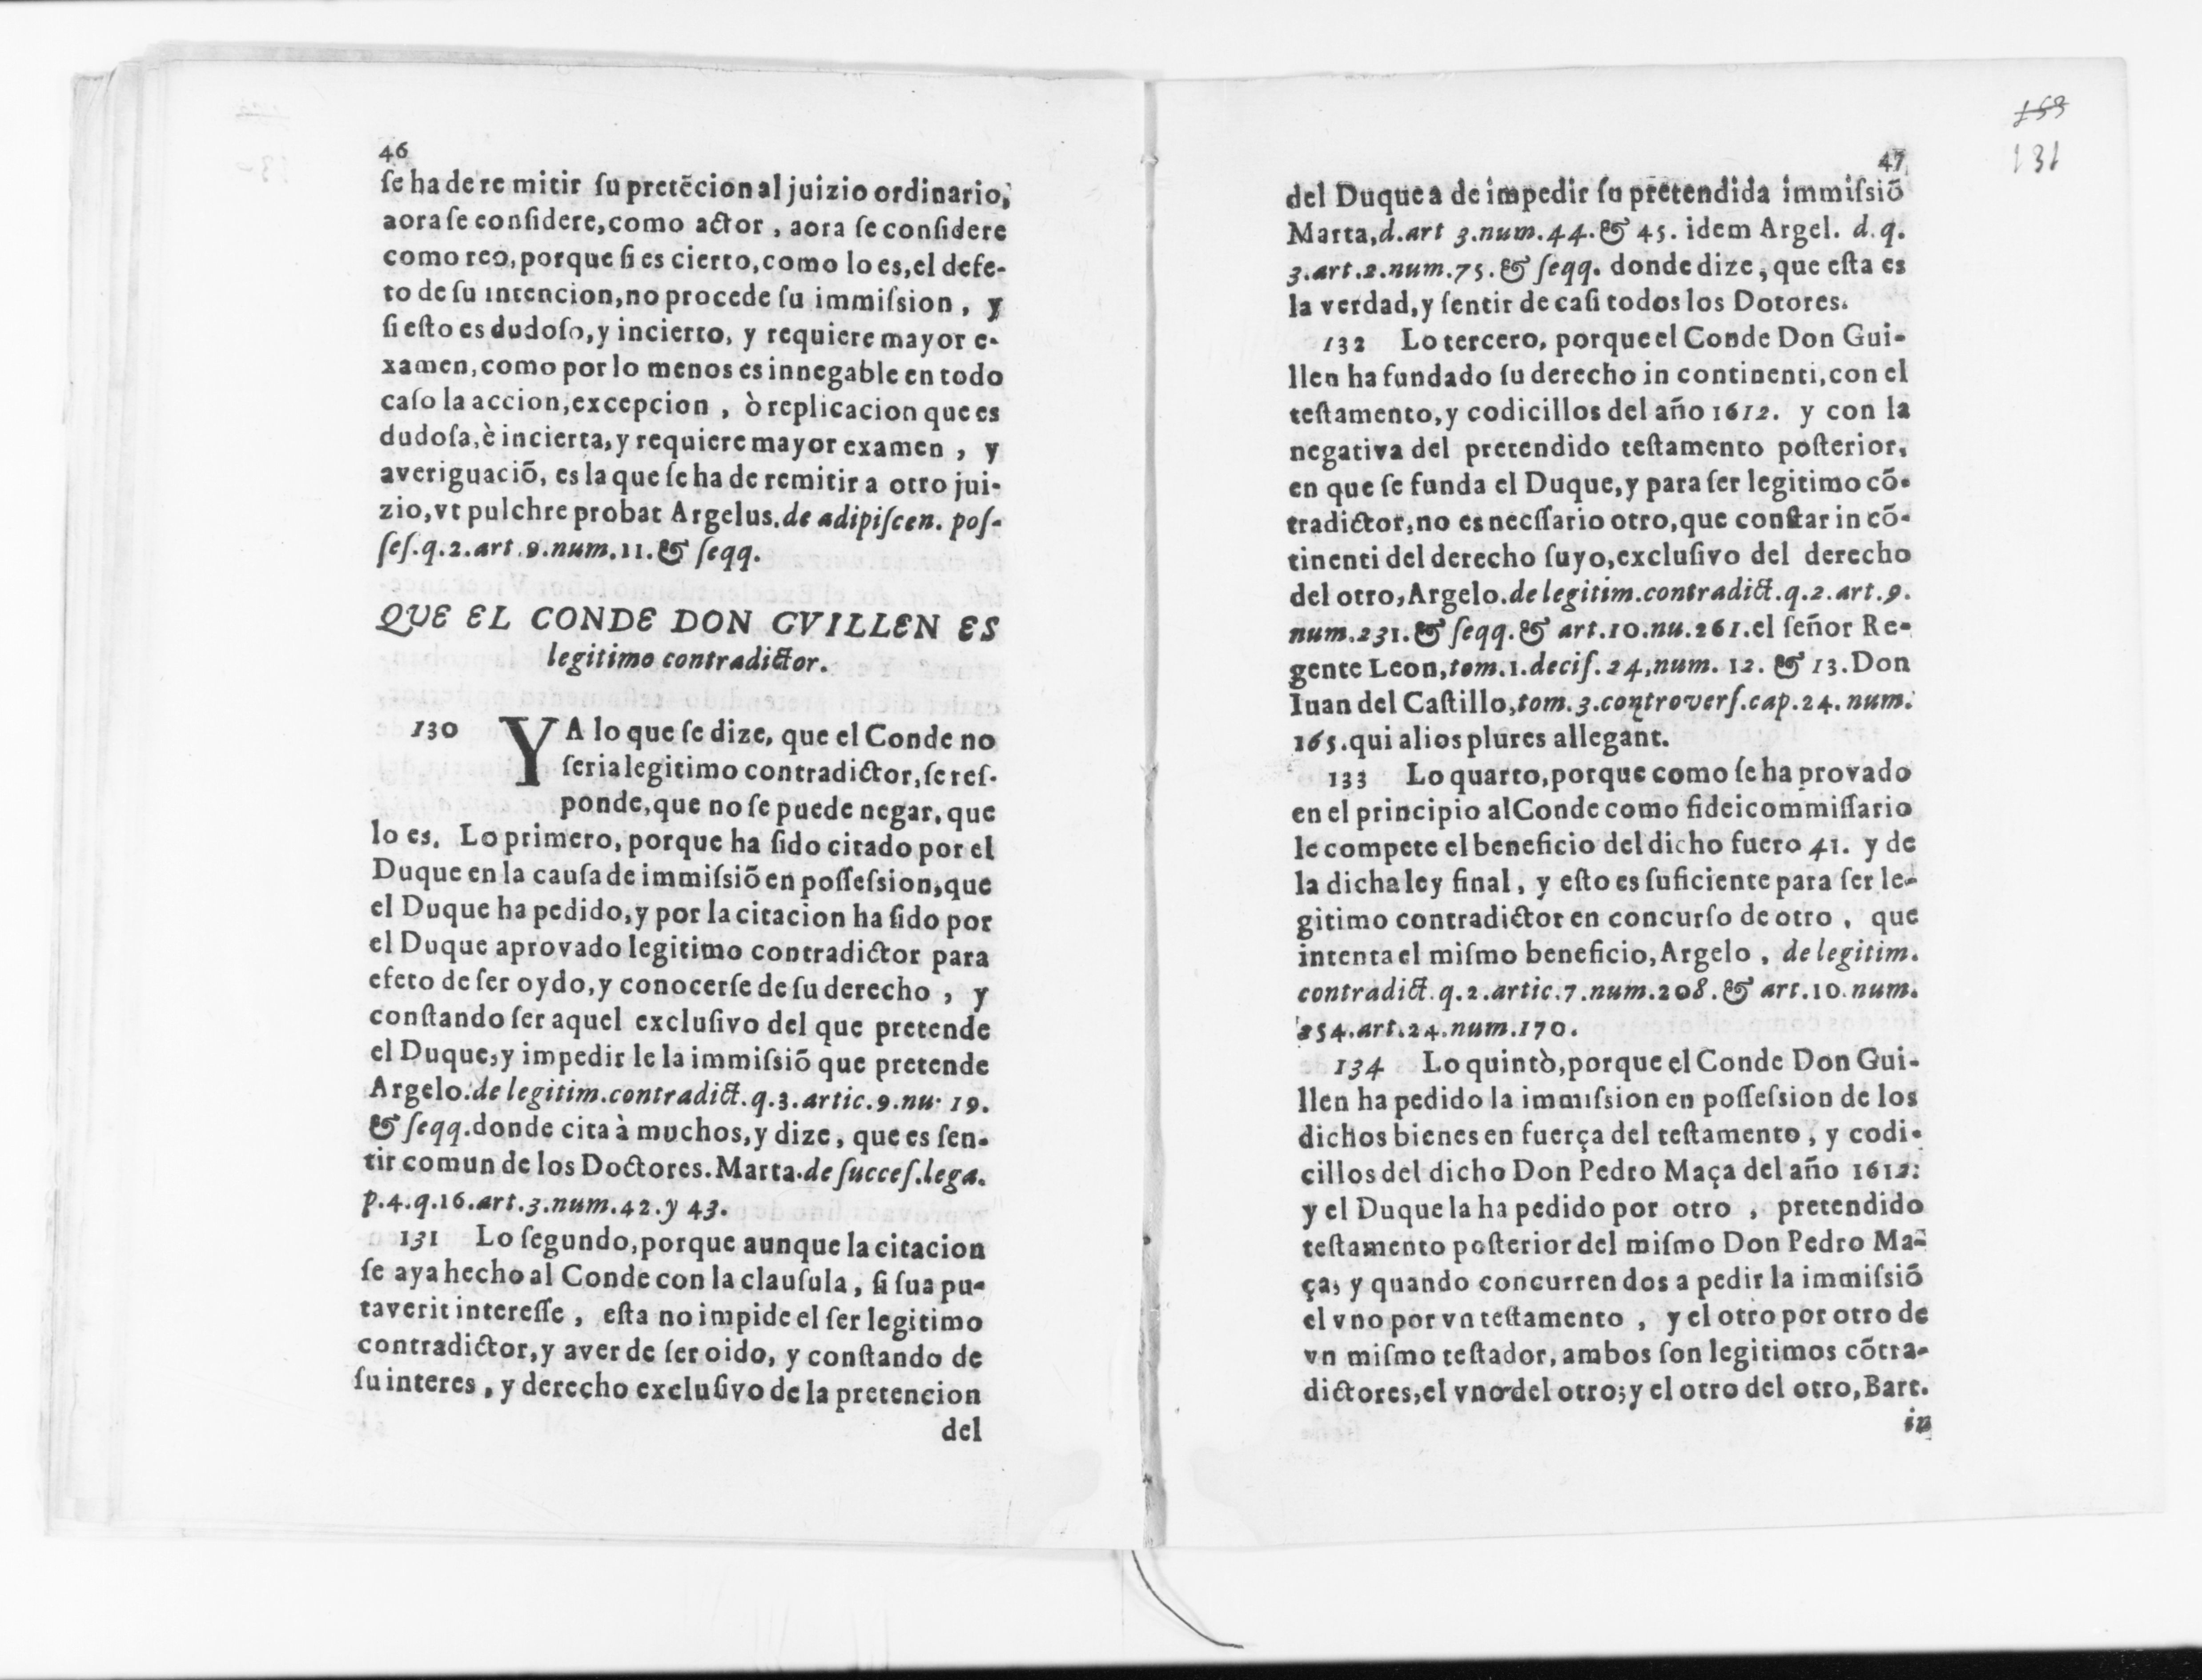 46
ſe ha de re mitir ſu pretẽcion al juizio ordinario,
aora ſe conſidere, como actor, aora ſe conſidere
como reo, porque ſi es cierto, como lo es, el defe-
to de ſu intencion, no procede ſu immiſsion, y
ſi eſto es dudoſo, y incierto, y requiere mayor e-
xamen, como por lo menos es innegable en todo
caſo la accion, excepcion, ò replicacion que es
dudoſa, è incierta, y requiere mayor examen, y
averiguaciõ, es la que ſe ha de remitir a otro jui-
zio, vt pulchre probat Argelus. de adipiſcen. poſ-
ſeſ. q. 2. art. 9. num. 11. & ſeqq.
QUE EL CONDE DON GVILLEN ES
legitimo contradictor.
130 YA lo que ſe dize, que el Conde no
ſeria legitimo contradictor, ſe reſ-
ponde, que no ſe puede negar, que
lo es. Lo primero, porque ha ſido citado por el
Duque en la cauſa de immiſsiõ en poſſeſsion, que
el Duque ha pedido, y por la citacion ha ſido por
el Duque aprovado legitimo contradictor para
efeto de ſer oydo, y conocerſe de ſu derecho, y
conſtando ſer aquel excluſivo del que pretende
el Duque, y impedir le la immiſsiõ que pretende
Argelo. de legitim. contradict. q. 3. artic. 9. nu. 19.
& ſeqq. donde cita à muchos, y dize, que es ſen-
tir comun de los Doctores. Marta. de ſucceſ. lega.
p. 4. q. 16. art. 3. num. 42. y 43.
131 Lo ſegundo, porque aunque la citacion
ſe aya hecho al Conde con la clauſula, ſi ſua pu-
taverit intereſſe, eſta no impide el ſer legitimo
contradictor, y aver de ſer oido, y conſtando de
ſu interes, y derecho excluſivo de la pretencion
del
153
131
47
del Duque a de impedir ſu pretendida immiſsiõ
Marta, d. art 3. num. 44. & 45. idem Argel. d. q.
3. art. 2. num. 75. & ſeqq. donde dize, que eſta es
la verdad, y ſentir de caſi todos los Dotores.
132 Lo tercero, porque el Conde Don Gui-
llen ha fundado ſu derecho in continenti, con el
teſtamento, y codicillos del año 1612. y con la
negativa del pretendido teſtamento poſterior,
en que ſe funda el Duque, y para ſer legitimo cõ-
tradictor, no es necſſario otro, que conſtar in cõ-
tinenti del derecho ſuyo, excluſivo del derecho
del otro, Argelo. de legitim. contradict. q. 2. art. 9.
num. 231. & ſeqq. & art. 10. nu. 261. el ſeñor Re-
gente Leon, tom. 1. deciſ. 24, num. 12. & 13. Don
Iuan del Caſtillo, tom. 3. controverſ. cap. 24. num.
165. qui alios plures allegant.
133 Lo quarto, porque como ſe ha provado
en el principio al Conde como fideicommiſſario
le compete el beneficio del dicho fuero 41. y de
la dicha ley final, y eſto es ſuficiente para ſer le-
gitimo contradictor en concurſo de otro, que
intenta el miſmo beneficio, Argelo, de legitim.
contradict. q. 2. artic. 7. num. 208. & art. 10. num.
254. art. 24. num. 170.
134 Lo quintò, porque el Conde Don Gui-
llen ha pedido la immiſsion en poſſeſsion de los
dichos bienes en fuerça del teſtamento, y codi-
cillos del dicho Don Pedro Maça del año 1612:
y el Duque la ha pedido por otro, pretendido
teſtamento poſterior del miſmo Don Pedro Ma-
ça, y quando concurren dos a pedir la immiſsiõ
el vno por vn teſtamento, y el otro por otro de
vn miſmo teſtador, ambos ſon legitimos cõtra-
dictores, el vno del otro; y el otro del otro, Bart.
in